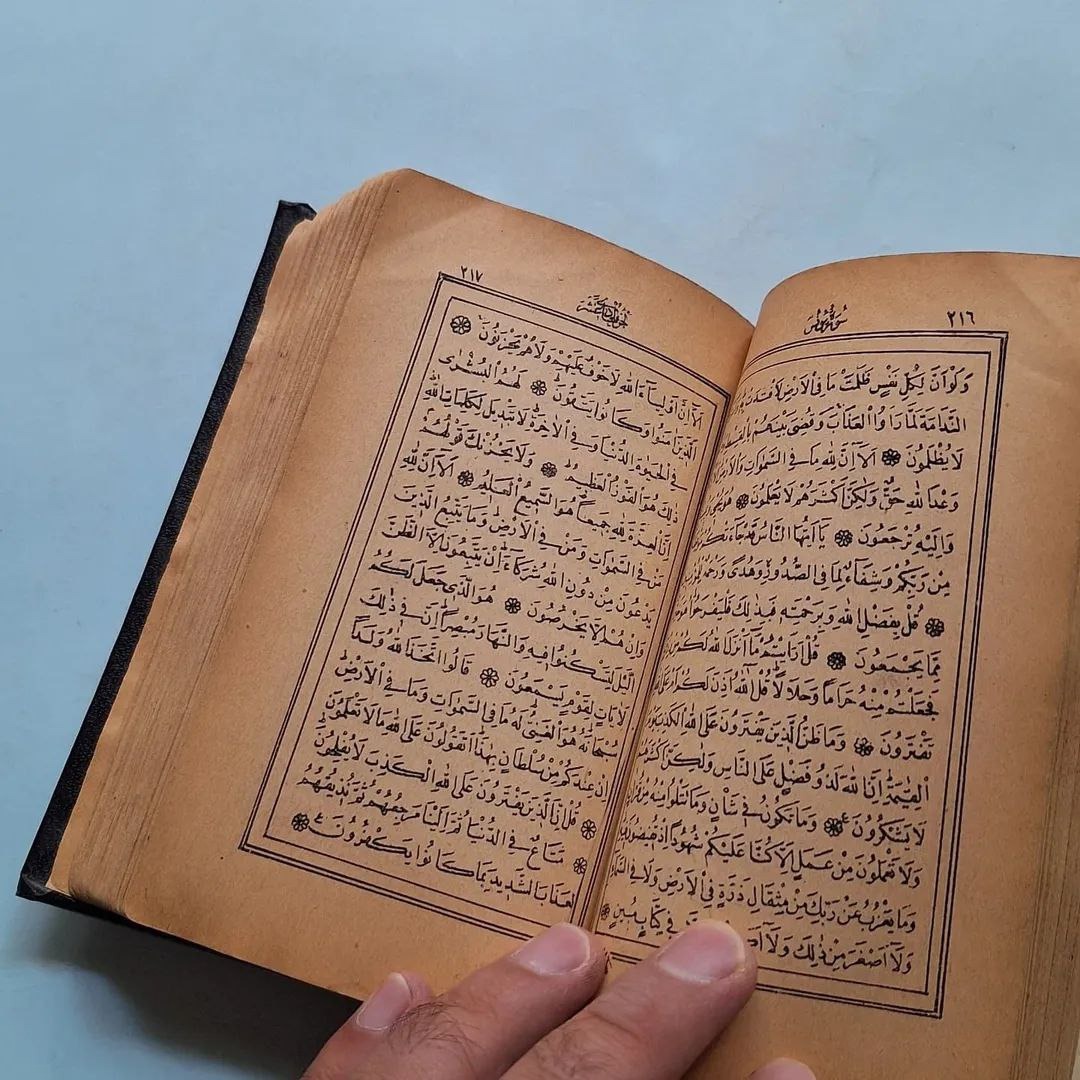 ٢١٦
سُورَةُ يُونُسَ
وَلَوْ اَنَّ لِكُلِّ نَفْسٍ ظَلَمَتْ مَا فِي الْاَرْضِ لَافْتَدَتْ
النَّدَامَةَ لَمَّا رَاَوُا الْعَذَابَ وَقُضِيَ بَيْنَهُمْ بِالْقِسْطِ
لَا يُظْلَمُونَ ❁ اَلَا اِنَّ لِلّٰهِ مَا فِي السَّمٰوَاتِ وَالْاَرْضِ
وَعْدَ اللّٰهِ حَقٌّ وَلٰكِنَّ اَكْثَرَهُمْ لَا يَعْلَمُونَ ❁ هُوَ يُحْيِي
وَاِلَيْهِ تُرْجَعُونَ ❁ يَا اَيُّهَا النَّاسُ قَدْ جَاءَتْكُمْ
مِنْ رَبِّكُمْ وَشِفَاءٌ لِمَا فِي الصُّدُورِ وَهُدًى وَرَحْمَةٌ
❁ قُلْ بِفَضْلِ اللّٰهِ وَبِرَحْمَتِهِ فَبِذٰلِكَ فَلْيَفْرَحُوا هُوَ
مِمَّا يَجْمَعُونَ ❁ قُلْ اَرَاَيْتُمْ مَا اَنْزَلَ اللّٰهُ لَكُمْ مِنْ
فَجَعَلْتُمْ مِنْهُ حَرَامًا وَحَلَالًا قُلْ آللّٰهُ اَذِنَ لَكُمْ اَمْ عَلَى
تَفْتَرُونَ ❁ وَمَا ظَنُّ الَّذِينَ يَفْتَرُونَ عَلَى اللّٰهِ الْكَذِبَ يَوْمَ
الْقِيٰمَةِ اِنَّ اللّٰهَ لَذُو فَضْلٍ عَلَى النَّاسِ وَلٰكِنَّ اَكْثَرَهُمْ
لَا يَشْكُرُونَ ❁ وَمَا تَكُونُ فِي شَاْنٍ وَمَا تَتْلُوا مِنْهُ مِنْ قُرْاٰنٍ
وَلَا تَعْمَلُونَ مِنْ عَمَلٍ اِلَّا كُنَّا عَلَيْكُمْ شُهُودًا اِذْ تُفِيضُونَ فِيهِ
وَمَا يَعْزُبُ عَنْ رَبِّكَ مِنْ مِثْقَالِ ذَرَّةٍ فِي الْاَرْضِ وَلَا فِي السَّمَاءِ
وَلَا اَصْغَرَ مِنْ ذٰلِكَ وَلَا فِي كِتَابٍ مُبِينٍ ❁
٢١٧
اَلْجُزْءُ الْحَادِي عَشَرَ
اَلَا اِنَّ اَوْلِيَاءَ اللّٰهِ لَا خَوْفٌ عَلَيْهِمْ وَلَا هُمْ يَحْزَنُونَ ❁
اَلَّذِينَ اٰمَنُوا وَكَانُوا يَتَّقُونَ ❁ لَهُمُ الْبُشْرٰى
فِي الْحَيٰوةِ الدُّنْيَا وَفِي الْاٰخِرَةِ لَا تَبْدِيلَ لِكَلِمَاتِ اللّٰهِ
ذٰلِكَ هُوَ الْفَوْزُ الْعَظِيمُ ❁ وَلَا يَحْزُنْكَ قَوْلُهُمْ
اِنَّ الْعِزَّةَ لِلّٰهِ جَمِيعًا هُوَ السَّمِيعُ الْعَلِيمُ ❁ اَلَا اِنَّ لِلّٰهِ
مَنْ فِي السَّمٰوَاتِ وَمَنْ فِي الْاَرْضِ وَمَا يَتَّبِعُ الَّذِينَ
يَدْعُونَ مِنْ دُونِ اللّٰهِ شُرَكَاءَ اِنْ يَتَّبِعُونَ اِلَّا الظَّنَّ
وَاِنْ هُمْ اِلَّا يَخْرُصُونَ ❁ هُوَ الَّذِي جَعَلَ لَكُمُ
الَّيْلَ لِتَسْكُنُوا فِيهِ وَالنَّهَارَ مُبْصِرًا اِنَّ فِي ذٰلِكَ
لَاٰيَاتٍ لِقَوْمٍ يَسْمَعُونَ ❁ قَالُوا اتَّخَذَ اللّٰهُ وَلَدًا
سُبْحَانَهُ هُوَ الْغَنِيُّ لَهُ مَا فِي السَّمٰوَاتِ وَمَا فِي الْاَرْضِ
اِنْ عِنْدَكُمْ مِنْ سُلْطَانٍ بِهٰذَا اَتَقُولُونَ عَلَى اللّٰهِ مَا لَا تَعْلَمُونَ
❁ قُلْ اِنَّ الَّذِينَ يَفْتَرُونَ عَلَى اللّٰهِ الْكَذِبَ لَا يُفْلِحُونَ
❁ مَتَاعٌ فِي الدُّنْيَا ثُمَّ اِلَيْنَا مَرْجِعُهُمْ ثُمَّ نُذِيقُهُمُ
الْعَذَابَ الشَّدِيدَ بِمَا كَانُوا يَكْفُرُونَ ع ❁